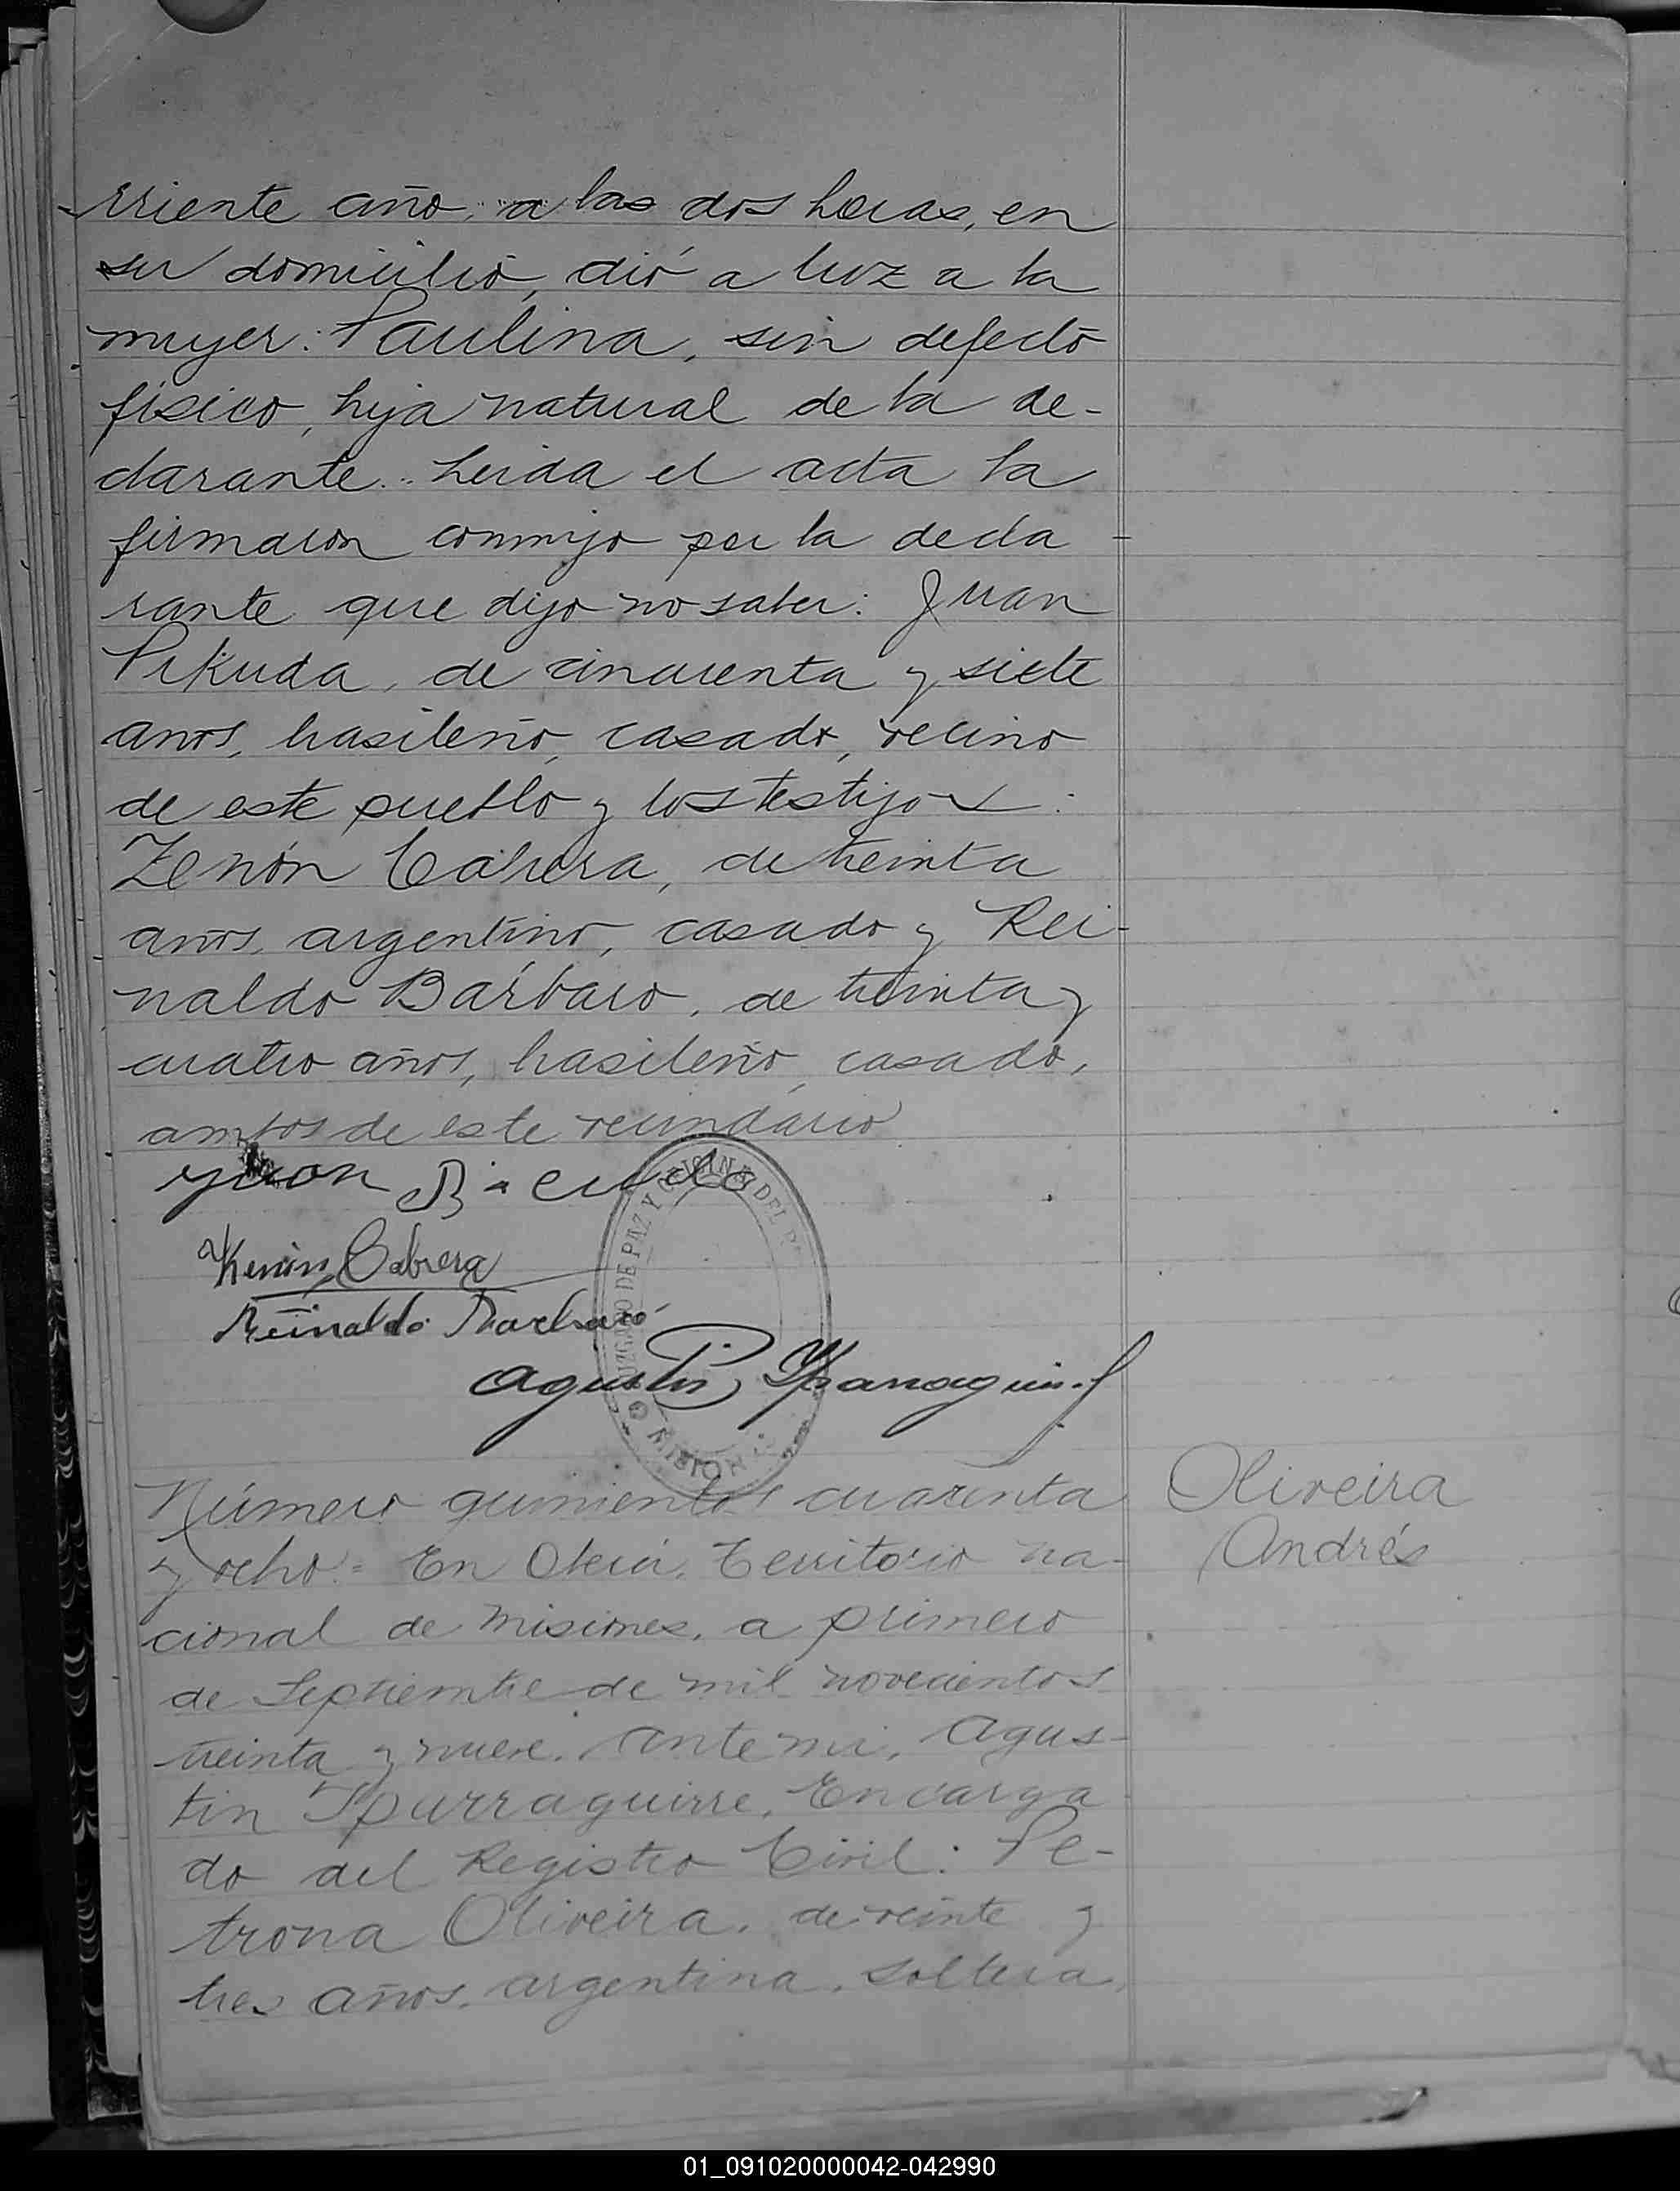 rriente año, a las dos horas, en
su domicilio, dió a luz a la
mujer: Paulina, sin defecto
físico, hija natural de la de-
clarante.. Leida el acta la
firmaron conmigo por la decla-
rante que dijo no saber: Juan
Pikuda, de cincuenta y siete
años, brasileño, casado, vecino
de este pueblo y los testigos:
Zenón Cabrera, de treinta
años, argentino, casado y Rei-
naldo Bárbaro, de treinta y
cuatro años, brasileño, casado,
ambos de este vecindario
Zenón Cabrera
Reinaldo Barbaró
JUZGADO DE PAZ Y DEL
MISIONES
Agustín Yparraguirre
Número quinientos cuarenta
y ocho:= En Oberá, Territorio na-
cional de Misiones, a primero
de Septiembre de mil novecientos
treinta y nueve. Ante mi, Agus-
tin Iparraguirre, Encarga-
do del Registro Civil: Pe-
trona Oliveira, de veinte y
tres años, argentina, soltera,
Oliveira
Andrés
01_091020000042-042990